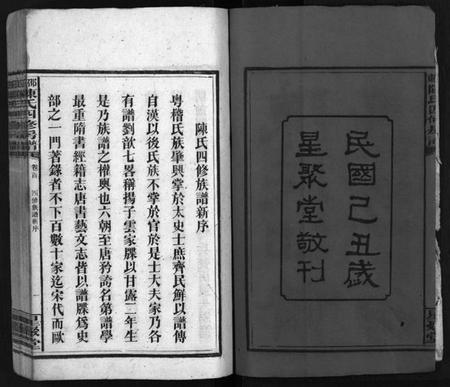 民國己丑歲
星聚堂敬刊
陳氏四修族譜新序
粵稽氏族肇興掌於太史士庶齊民鮮以譜傳
自漢以後氏族不掌於官於是士大夫家乃各
有譜劉歆七畧稱揚子雲家牒以甘露二年生
是乃族譜之權輿也六朝至唐矜誇名第譜學
最重隋書經籍志唐書藝文志皆以譜牒爲史
部之一門著錄者不下百數十家迄宋代而歐
陳氏四修房譜
卷首
四修族譜新序
一
星聚堂